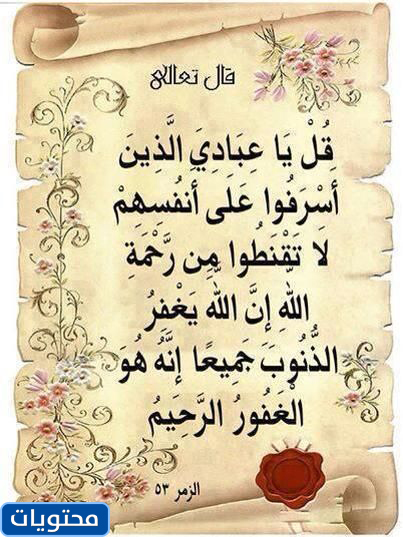 قال تعالى
قُلْ يَا عِبَادِيَ الَّذِينَ
أَسْرَفُوا عَلَى أَنفُسِهِمْ
لَا تَقْنَطُوا مِن رَّحْمَةِ
اللَّهِ إِنَّ اللَّهَ يَغْفِرُ
الذُّنُوبَ جَمِيعًا إِنَّهُ هُوَ
الْغَفُورُ الرَّحِيمُ
الزمر ٥٣
محتويات